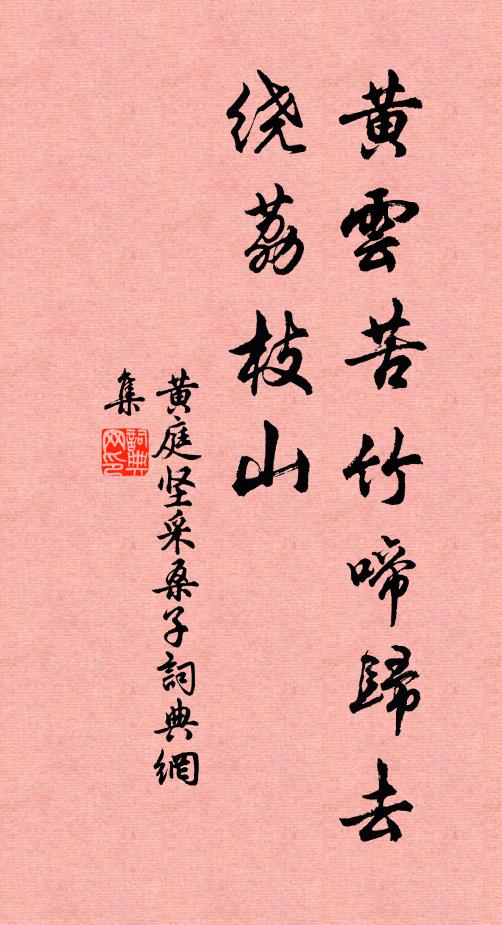 黄雲苦竹啼歸去
绕荔枝山
黄庭坚采桑子詞典網
集
詞典网印